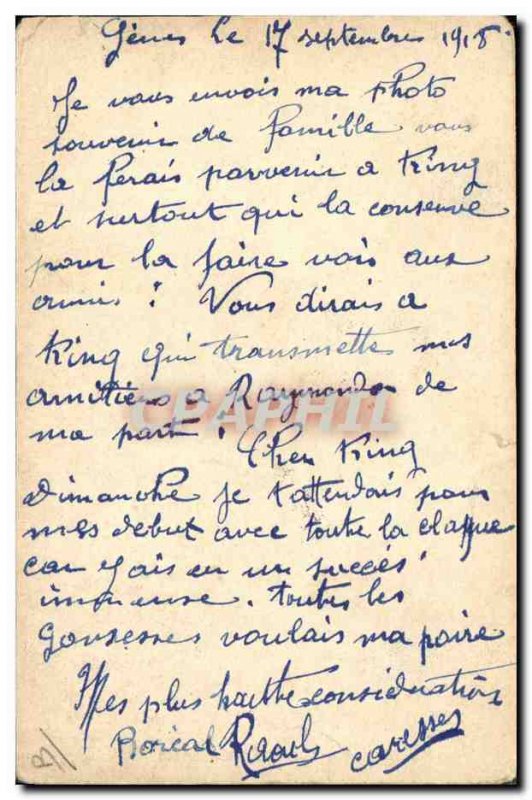 Gènes le 17 septembre 1918
Je vous envois ma photo
souvenir de famille vous
la ferais parvenir a King
et surtout qui la conserve
pour la faire voir aux
amis ! Vous dirais a
King qui transmette mes
amitiers a Raymonde de
ma part ! Cher King
Dimanche je t'attendais pour
mes debut avec toute la claque
car j'ais eu un succés
immense. toutes les
gonsesses voulais ma poire
Mes plus haute consideration
Boreal
caresses
CPAPHIL